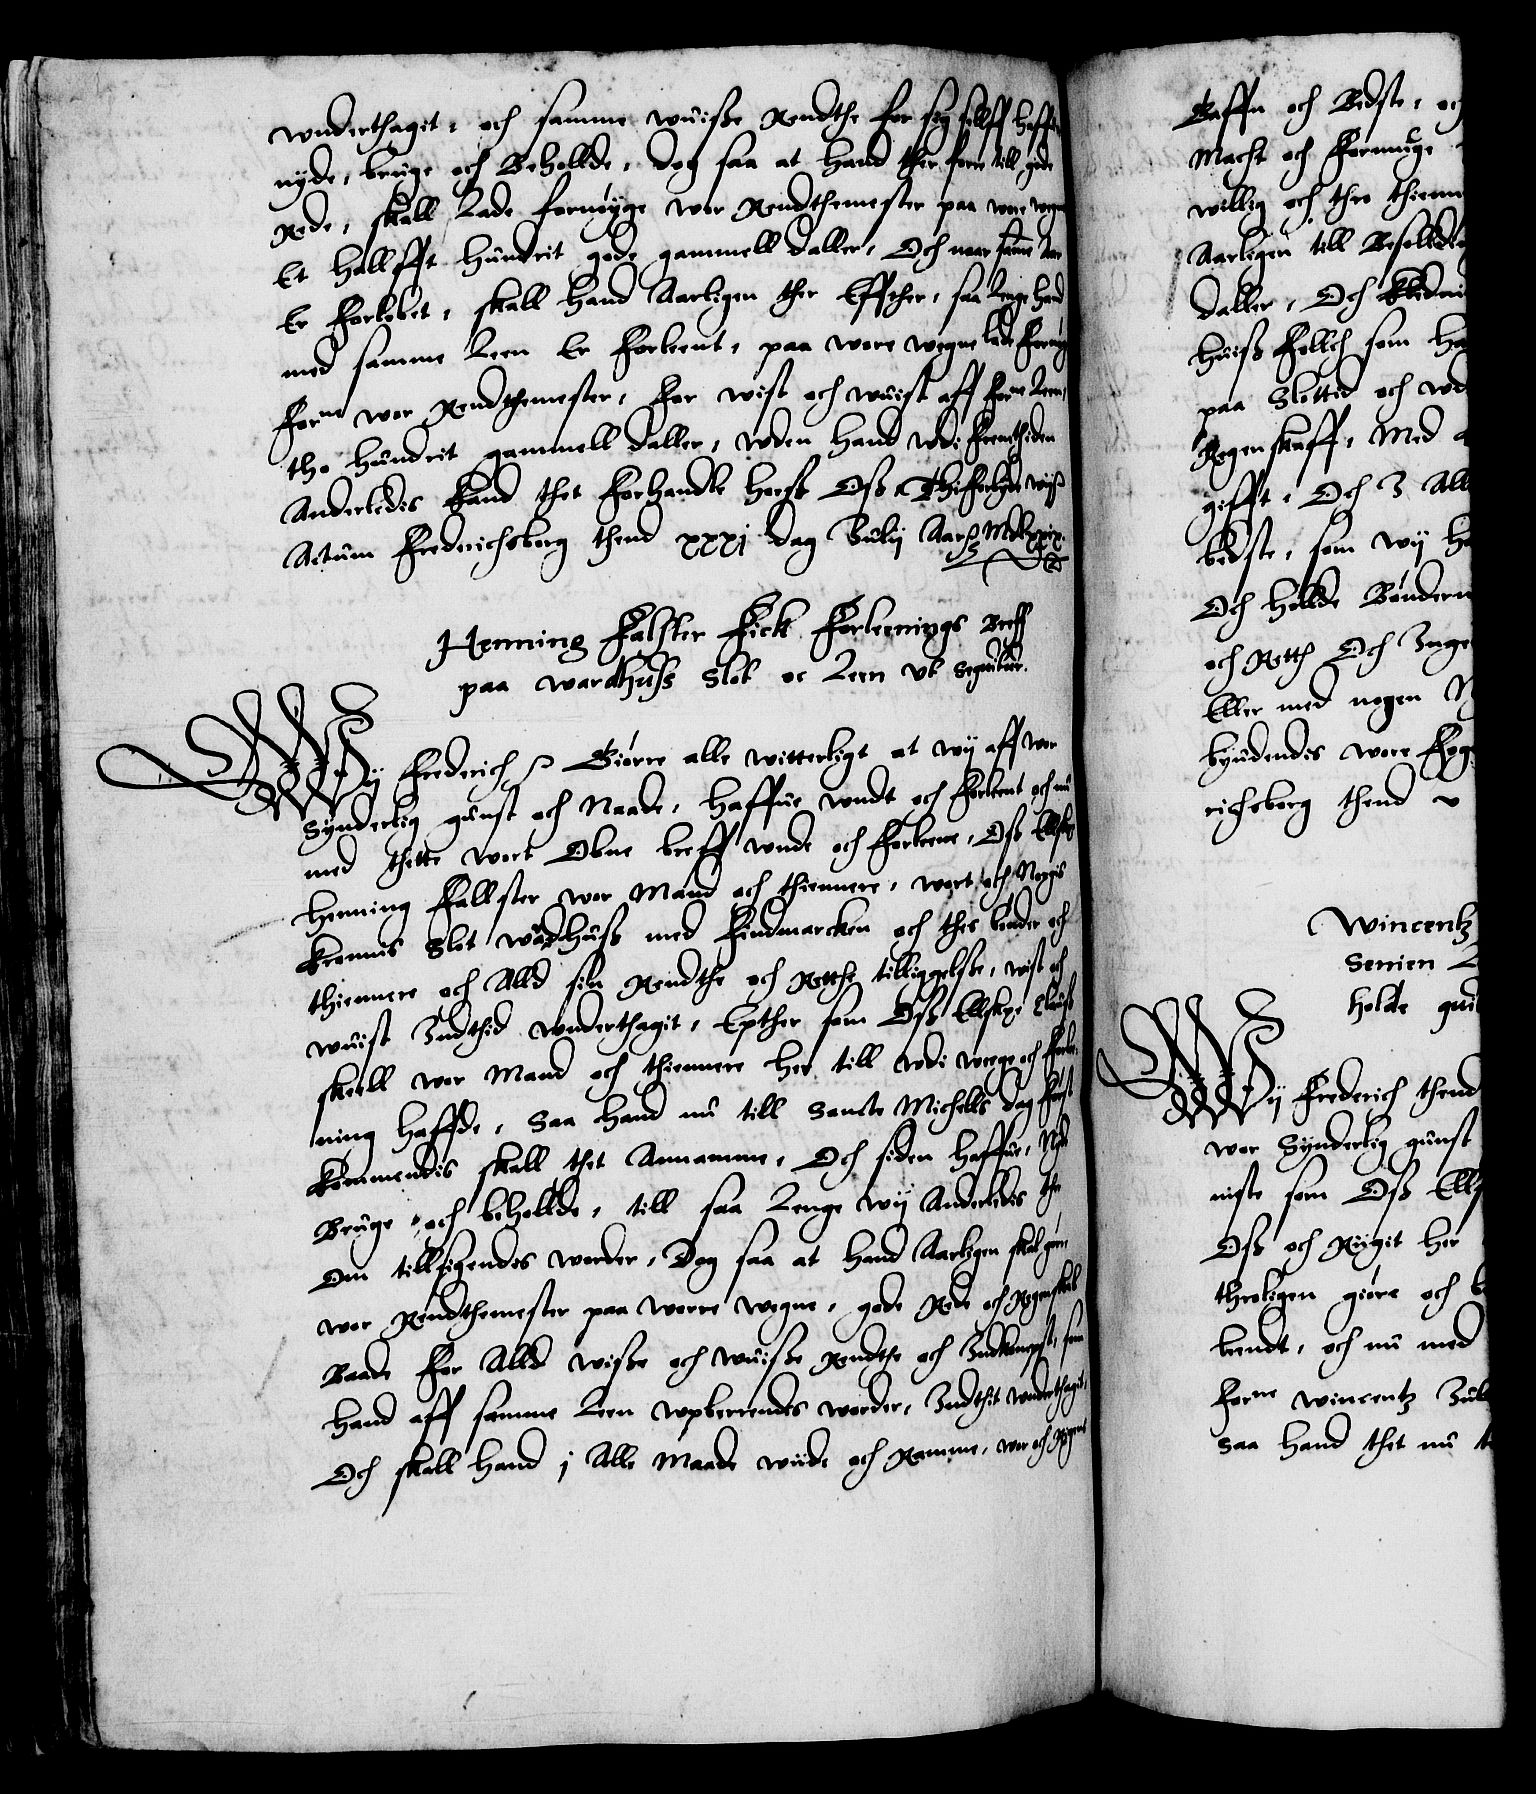 wnderthagit, och samme wuisse Rendthe for sig sellff haffue
nyde, bruge och Behollde, dog saa at hand ther forre till gode
Rede, skall Lade fornøyge wor Rendthemester paa wore wegne
Et hallfft hundrit gode gammell daller, Och naar samme Aar
Er Forløbet, skall hand Aarligen ther Effther, saa lenge hand
med samme Leen Er Forleent, paa wore wegne lade Fornøy
Forne wor Rendthemester, for wist och wuist aff forne Leen,
tho hundrit gammell daller, wden hand wdi Fremtiden
Anderledis kand thet Forhandle hoess Oss
Actum Frederichsborg thend xxxj dag Julij Aar Mdlxxix.
Henning Falster Fick Forlenings Breff
paa wardhuss Slot oc Leen vt sequitur.
Wy Frederich Giørre alle witterligt at wy aff wor
Synderlig gunst och Naade, haffue wndt och Forlent och nu
med thette wort Obne breff wnde och Forleene, Oss Ellskel
Henning Fallster wor Mand och thiennere, wort och Norgis
Kronnis Slot wardhuss med Findmarcken och thes bønder och
thiennere och Alld sin Rendthe och Retthe tilliggelsse, wist och
wuist Indthid wnderthagit, Epther som Oss Ellskel
skeell wor Mand och thiennere her till wdi werge och Forle
ning haffde, Saa hand nu till Sancte Michells dag først
kommendis skall thet Annamme, Och siden haffue, Nyde
Bruge och behollde, till saa Lenge wy Anderledis ther
Om tillsigendis worder, Dog saa at hand Aarligen skal gøre
wor Rendthemester paa worre wegne, gode Rede och Regenskab
Baade For Alld wisse och wuisse Rendthe och Indkompst, som
hand aff samme Leen wpberrendes worder, Indthit wnderthagit,
Och skall hand j Alle Maade wiide och Ramme, wor och Rigens
Gaffn och Bedste, och
Macht och Formuge
willig och thro thienn
Aarligen till Besolldt
daller, Och Kledni
huiss Follch som ha
paa Slottid och wd
Regenskaff, Med
gifft, Och J All
bedste, som wy ha
Och hollde Bøndern
och Retth Och Inge
Eller med nogen
byudendis wore Fog
richsborg thend v
Wincentz
Senien
holde
Wy Frederich thend
wor Synderlig gunst
niste som Oss Ells
Oss och Riigit her
throligen giøre och
leendt, och nu med
Forne wincentz Jul
Saa hand thet nu